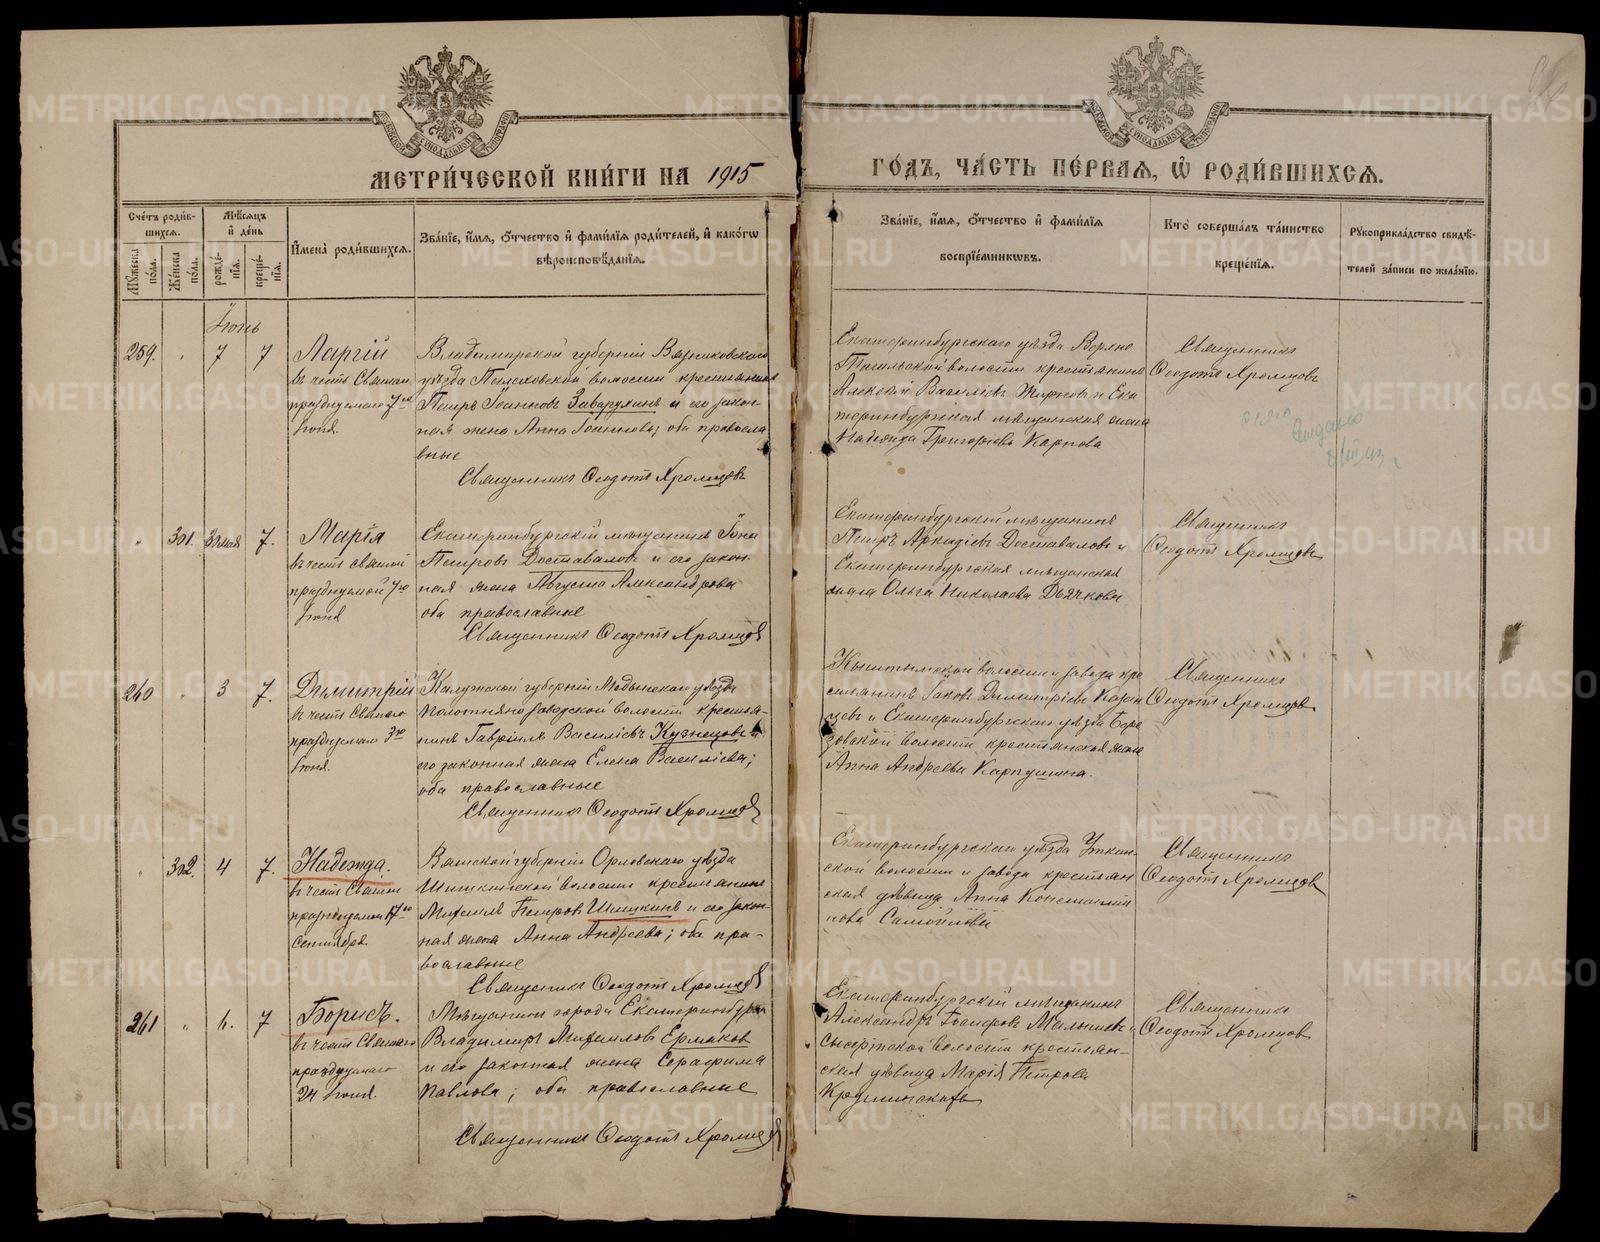 МЕТРИ́ЧЕСКОЙ КНИ́ГИ НА 1915
ГО́ДЪ, ЧА́СТЬ ПЕ́РВАЯ, Ѡ҆ РОДИ́ВШИХСЯ.
Сче́тъ роди́в-
шихся.
Мꙋ́жеска по́ла.
Же́нска по́ла.
Мѣ́сяцъ
и҆ де́нь
рожде́-
нїя.
креще́-
нїя.
И҆мена̀ роди́вшихся.
Зва́нїе, и҆́мя, ѻ҆́тчество и҆ фами́лїя роди́телей, и҆ како́гѡ
вѣроисповѣ́данїя.
Зва́нїе, и҆́мя, ѻ҆́тчество и҆ фами́лїя
воспрїе́мникѡвъ.
Кто̀ соверша́лъ та́инство
креще́нїя.
Рꙋкоприкла́дство свидѣ́-
телей за́писи по жела́нїю.
Іюнь
259. " 7 7
Ларгій
въ честь Святаго
празднуемаго 7го
Іюня.
Владимірской губерніи Вязниковскаго
уѣзда волости крестьянинъ
Петръ Іоанновъ и его закон-
ная жена Анна Іоаннова; оба правосла
вные
Священникъ Ѳеодотъ Хромцовъ
Екатеринбургскаго уѣзда Верхне
Тагильской волости крестьянинъ
Алексѣй Васильевъ и Ека
теринбургская мѣщанская жена
Надежда Григорьева Карпова
Священникъ
Ѳеодотъ Хромцовъ
" 301. 31 мая 7.
Марія
въ честь святой
празднуемой 7го
Іюня
Екатеринбургскій мѣщанинъ Іона
Петровъ Доставаловъ и его закон-
ная жена Августа Александрова
оба православные
Священникъ Ѳеодотъ Хромцовъ
Екатеринбургскій мѣщанинъ
Петръ Аркадіевъ Доставаловъ и
Екатеринбургская мѣщанская
жена Ольга Николаева Дьячкова
Священникъ
Ѳеодотъ Хромцовъ
260 " 3 7.
Димитрій
въ честь Святаго
празднуемаго 3го
Іюня.
Калужской губерніи Медынскаго уѣзда
Полотняно заводской волости крестья-
нинъ Гавріилъ Васильевъ Кузнецовъ и
его законная жена Елена Васильева;
оба православные
Священникъ Ѳеодотъ Хромцовъ
Кыштымской волости и завода кре
стьянинъ Іаковъ Димитріевъ Казан
цевъ и Екатеринбургскаго уѣзда Бере
зовской волости крестьянская жена
Анна Андреева Карпушина.
Священникъ
Ѳеодотъ Хромцовъ
" 302. 4 7.
Надежда.
въ честь Святой
празднуемой 17го
Сентября.
Вятской губерніи Орловскаго уѣзда
волости крестьянинъ
Михаилъ Петровъ Шишкинъ и его закон-
ная жена Анна Андреева; оба пра-
вославные
Священникъ Ѳеодотъ Хромцовъ
Екатеринбургскаго уѣзда Уткин-
ской волости и завода крестьян
ская дѣвица Анна Константи
нова Самойлова
Священникъ
Ѳеодотъ Хромцовъ
261 " 6. 7
Борисъ.
въ честь Святаго
празднуемаго
24 Іюня.
Мѣщанинъ города Екатеринбурга
Владиміръ Михаиловъ Ермаковъ
и его законная жена Серафима
Павлова; оба православные
Священникъ Ѳеодотъ Хромцовъ
Екатеринбургскій мѣщанинъ
Александръ Малышевъ и
Сысертской волости крестьян-
ская дѣвица Марія Петрова
Священникъ
Ѳеодотъ Хромцов
METRIKI.GASO-URAL.RU